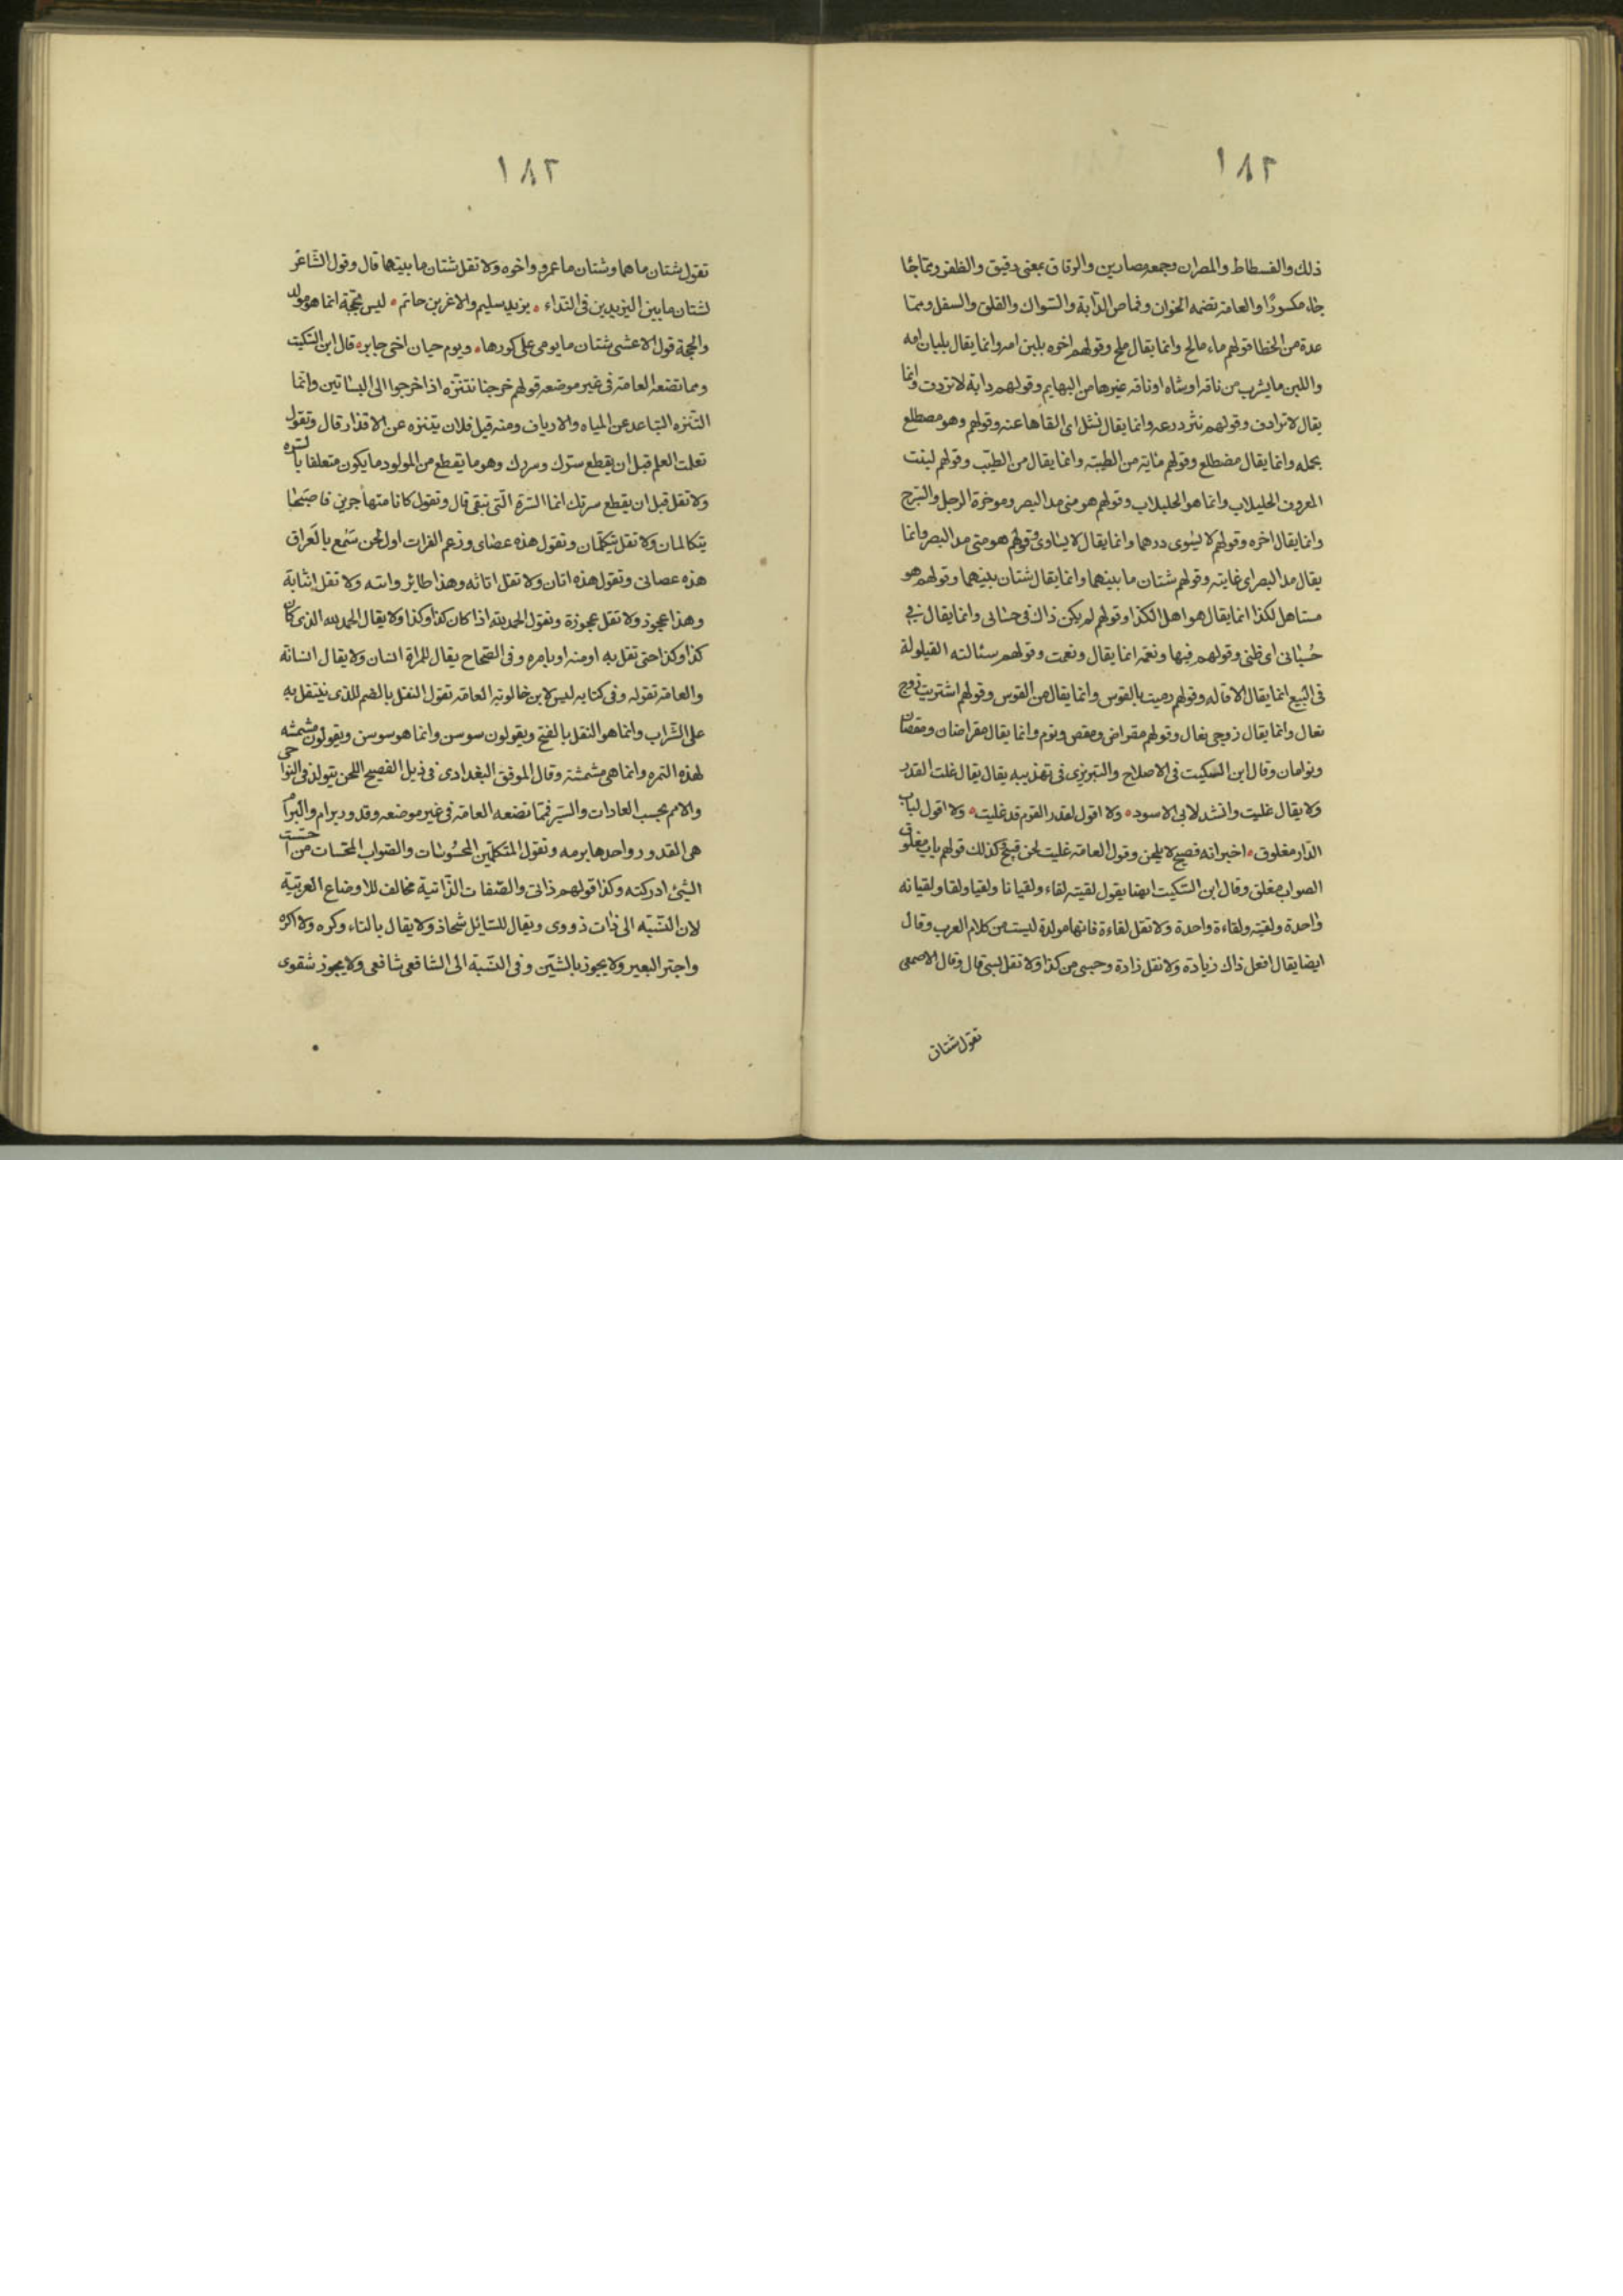 ١٨٢
ذلك والفسطاط والمصران وجمعه مصارين والرقاق بمعنى دقيق والظفر ومما جا
جاء مكسورًا والعامة تضمه الخوان وقماص الدابة والسواك والقلق والسفل ومما
عدة من الخطا قولهم ماء مالح وانما يقال ملح وقولهم اخوه بلبن امه وانما يقال بلبان امه
واللبن ما يشرب من ناقه او شاه او ناقه غيرها من البهايم وقولهم دابة لا تردت وانما
يقال لا ترادف وقولهم نثر درعه وانما يقال نثل اى القاها عنه وقولهم وهو مصطلع
بحمله وانما يقال مضطلع وقولهم مأية من الطيبة وانما يقال من الطيب وقولهم لبنت
المعروف الحليلاب وانما هو الحلبلاب وقولهم هو منى مد البصر وموخرة الرحل والسرج
وانما يقال اخره وقولهم لا يسوى درهما وانما يقال لا يساوى وقولهم هو منى مد البصر وانما
يقال مدا البصر اى غايته وقولهم شتان ما بينهما وانما يقال شتان بينهما وقولهم هو
مستاهل لكذا انما يقال هو اهل لكذا وقولهم لم يكن ذاك فى حسابى وانما يقال فى
حسبانى اى ظنى وقولهم فيها ونعمه انما يقال ونعمت وقولهم سئالته القيلولة
فى البيع انما يقال الاقاله وقولهم رميت بالقوس وانما يقال عن القوس وقولهم اشتريت زوج
نعال وانما يقال زوجى نعال وقولهم مقراض ومقص وتوم وانما يقال مقراضان ومقصان
وتوامان وقال ابن السكيت فى الاصلاح والتبريزى فى تهذيبه يقال يقال غلت القدر
ولا يقال غليت وانشد لابى الاسود ولا اقول لقدر القوم قد غليت ولا اقول لباب
الدار مغلوق اخبر انه فصيح لا يلحن وقول العامة غليت لحن قبيح كذلك قولهم باب مغلوق
الصواب مغلق وقال ابن السكيت ايضا يقول لقيته لقاء ولقيانا ولقيا ولقا ولقيانه
واحدة ولقية ولقاءة واحدة ولا تقل لقاءة فانها مولدة ليست من كلام العرب وقال
ايضا يقال افعل ذاك زيادة ولا تقل زادة وحسبى من كذا ولا تقل بسى قال وقال الاصمعى
تقول شتان
١٨٢
تقول شتان ما هما وشتان ما عمرو واخوه ولا تقل شتان ما بينهما قال وقول الشاعر
لشتان ما بين اليزيدين فى النداء يزيد سليم والاغر بن حاتم ليس بحجة انما هو مولد
والحجة قول الاعشى شتان ما يومى على كورها ويوم حيان اخى جابر قال ابن السكيت
ومما تضعه العامة فى غير موضعه قولهم خرجنا نتنزه اذا خرجوا الى البساتين وانما
التنزه التباعد عن المياه والارياف ومنه قيل فلان يتنزه عن الاقذار قال وتقول
تعلت العلم قبل ان يقطع سرك وسررك وهو ما يقطع من المولود ما يكون متعلقا بالسره
ولا تقل قبل ان يقطع سرتك انما السرة التى تبقى قال وتقول كانا متهاجرين فاصبحا
يتكالمان ولا تقل يتكلمان وتقول هذه عصاى وزعم الفرات اول لحن سمع بالعراق
هذه عصاتى وتقول هذه اتان ولا تقل اتانه وهذا طائر وانثه ولا تقل انثاية
وهذا عجوز ولا تقل عجوزة وتقول الحمد لله اذا كان كذا وكذا ولا يقال الحمد لله الذى كان
كذا وكذا حتى تقل به او منه او بامره وفى الصحاح يقال للمراة انسان ولا يقال انسانة
والعامة تقوله وفى كتاب ليس لابن خالويه العامة تقول النقل بالضم للذى ينتقل به
على الشراب وانما هو النقل بالفتح ويقولون سوسن وانما هو سوسن ويقولون مشمشه
لهذه الثمره وانما هى مشمشة وقال الموفق البغدادى فى ذيل الفصيح اللحن يتولد فى النواحى
والامم بحسب العادات والسير فمما تضعه العامة فى غير موضعه وقدور برام والبرام
هى القدور واحدها برمه وتقول المتكلمين المحسوسات والصواب المحسات من احسست
الشئ ادركته وكذا قولهم ذاتى والصفات الذاتية مخالف للاوضاع العربية
لان النسبة الى ذات ذووى ويقال للسائل شحاذ ولا يقال بالتاء وكره ولا اكره
واجتر البعير ولا يجوز بالشين وفى النسبة الى الشافعى شافعى ولا يجوز شفعوى